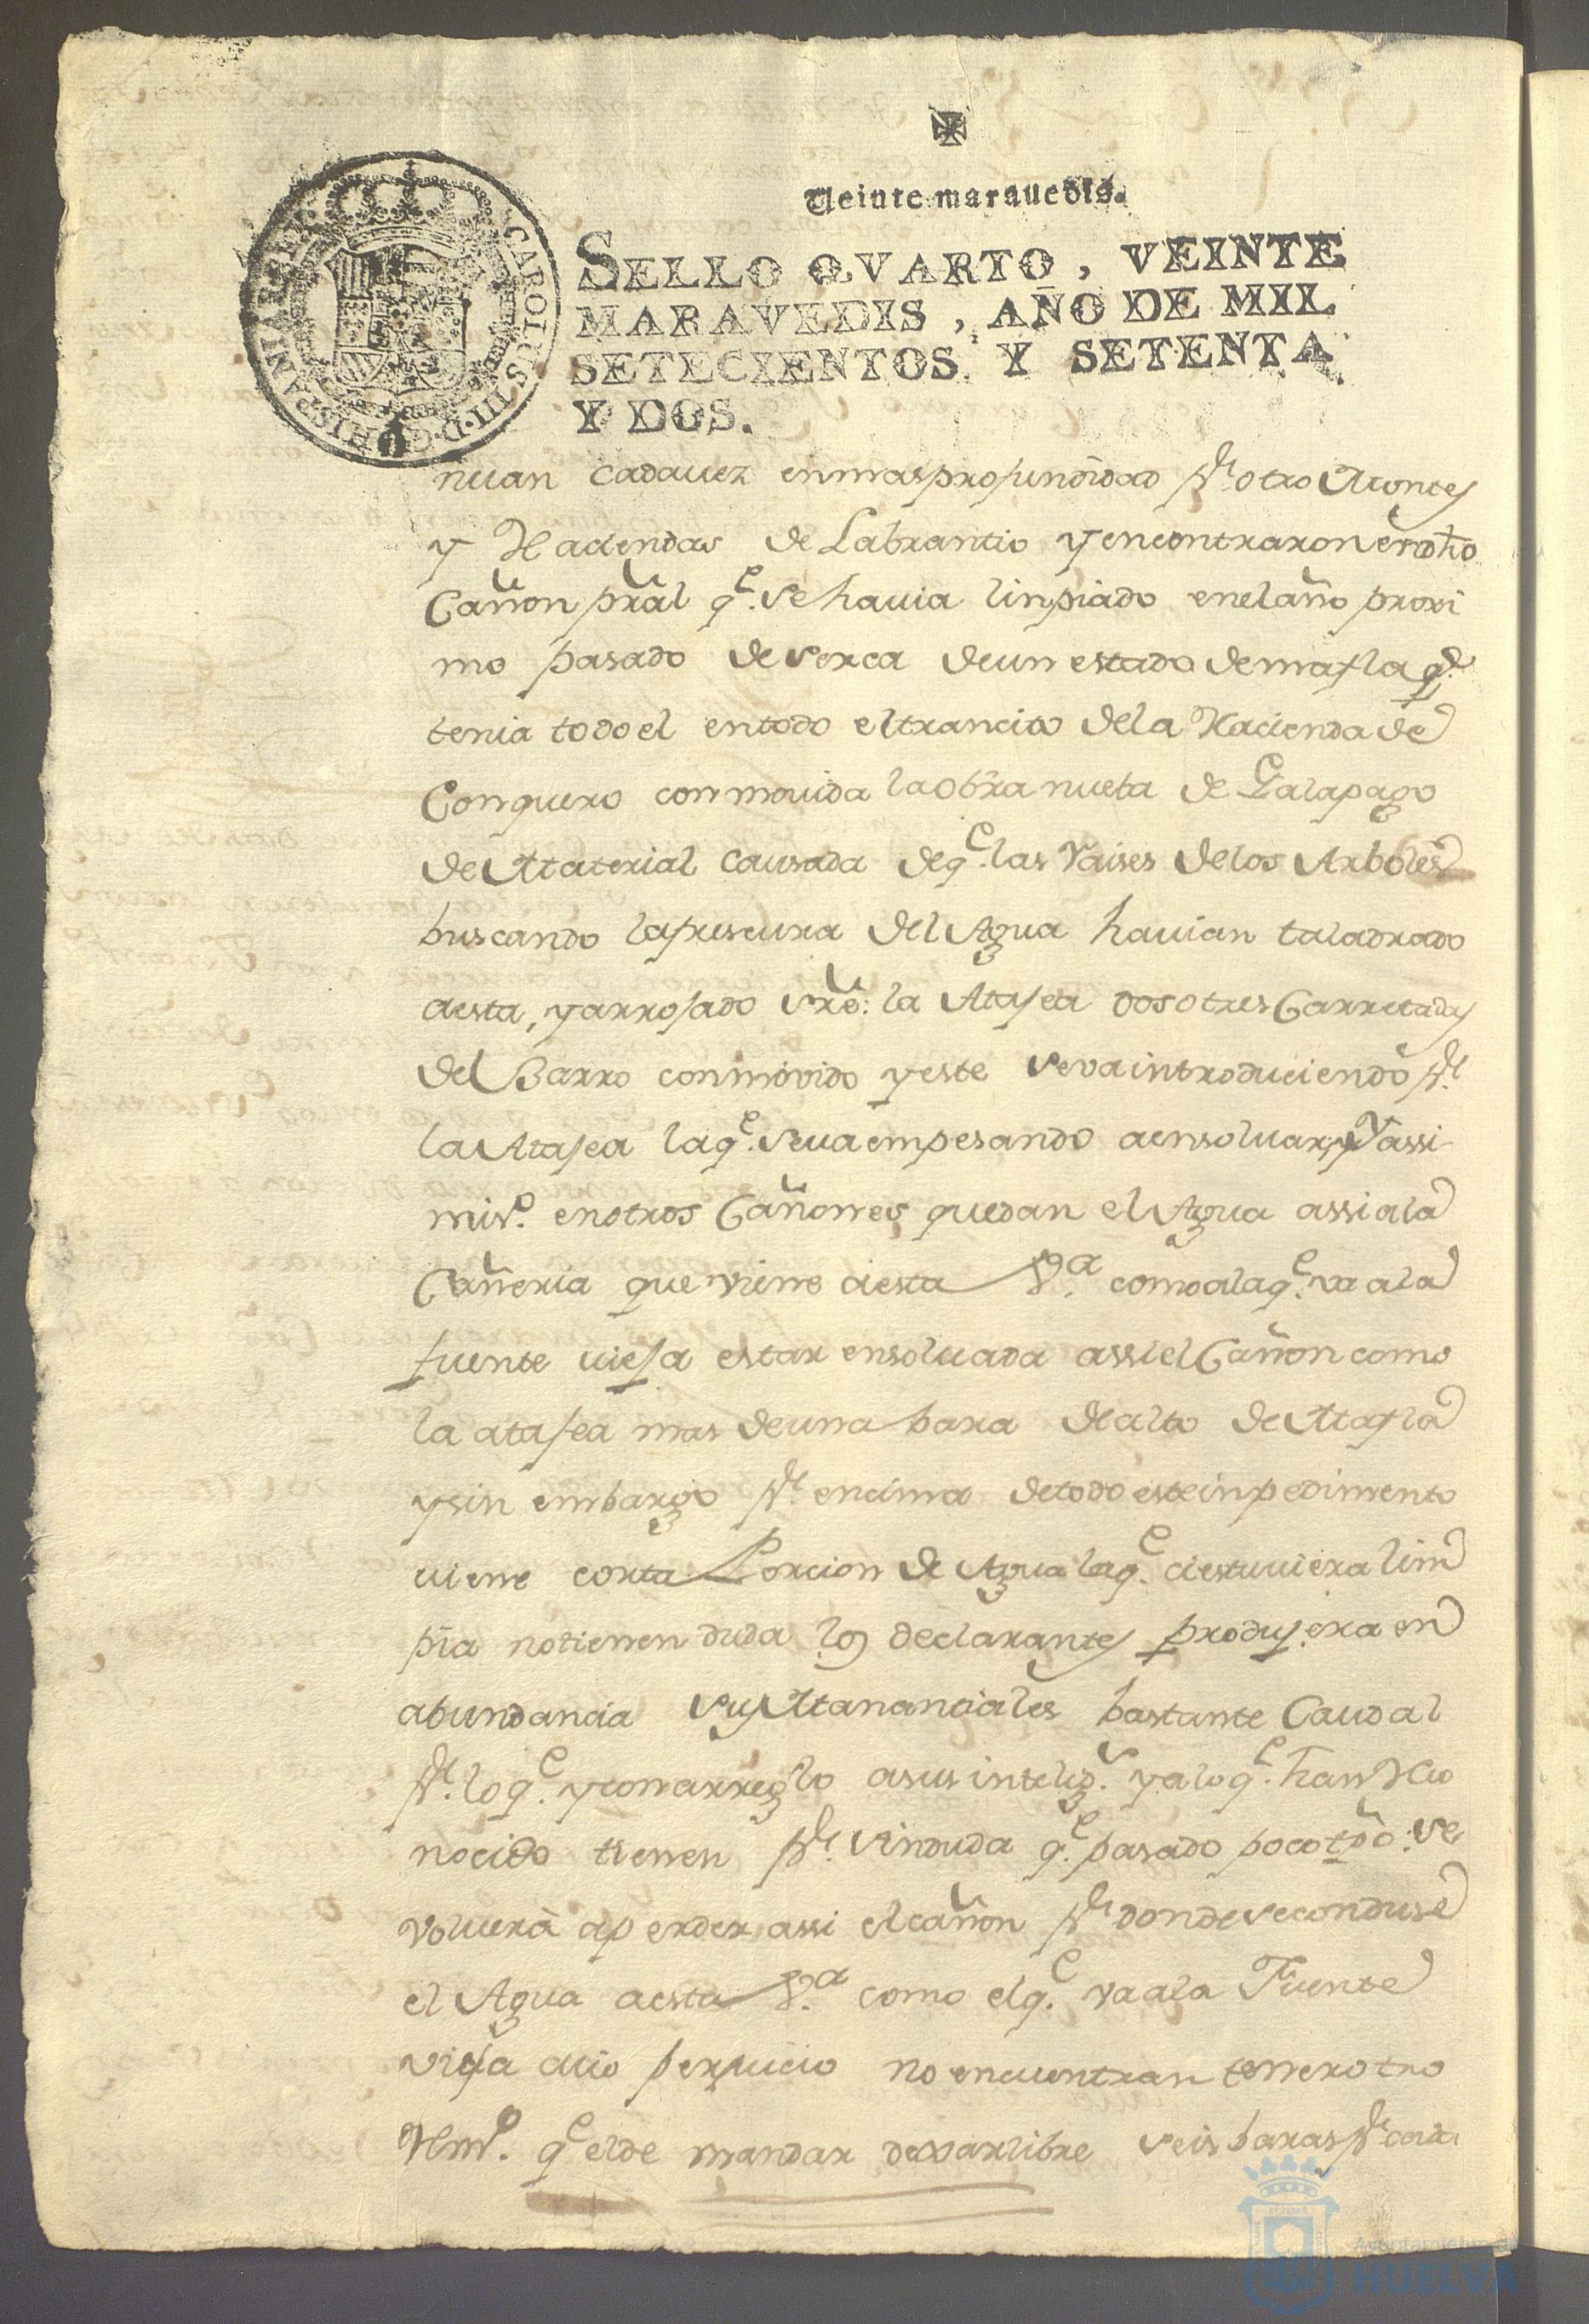 Veinte maravedis.
CAROLUS·III·D·G·HISPANIAR·REX
SELLO QVARTO, VEINTE
MARAVEDIS, AÑO DE MIL
SETECIENTOS Y SETENTA
Y DOS.
nuan cadauez enmas profundidad pr. otro Montes
y Haciendas de Labrantio y encontraron en dho
Cañon pral qe. se hauia linpiado en el año proxi
mo pasado de serca de un estado de masla qe.
tenia todo el en todo el trancito de la Hacienda de
Conquero conmouida la obra nueba de Galapago
de Material causada de qe. las Raises de los Arboles
buscando la frescura del Agua hauian taladrado
aesta, y arrojado sre. la Atajea dos o tres Carretadas
del Barro conmovido y este se va introduciendo pr.
la Atajea la qe. se ua empesando a ensoluar, Y assi
miso. en otros Cañones quedan el Agua assi a la
Cañeria que viene aesta Va. como a la qe. va a la
fuente uieja estar ensoluada assi el Cañon como
la atajea mas de una bara de alto de Masla
y sin embargo pr. encima de todo este inpedimento
uiene corta Porcion de Agua la qe. si estuuiera lim
pia no tienen duda los declarantes produjera en
abundancia sus Manantiales bastante Caudal
pr. lo qe. y con arreglo a sus intelig. y a lo qe. han Reco
nocido tienen pr. sin duda qe. pasado poco tpo. se
voluera a perder assi el cañon pr. donde se conduse
el Agua a esta Va. como el qe. va a la Fuente
vieja cuio perjuicio no encuentran tener otro
Rmo. qe el de mandar dexar libre seis baras pr. cada
HUELVA